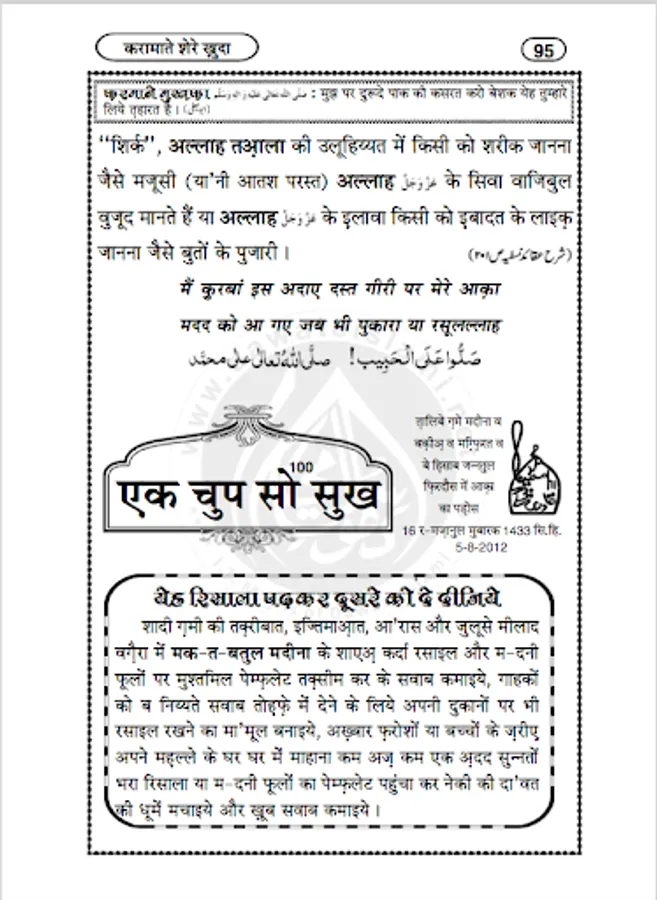 करामाते शेरे ख़ुदा
95
फ़रमाने मुस्त़फ़ा صلى الله تعالى عليه واله وسلم : मुझ पर दुरूदे पाक की कसरत करो बेशक येह तुम्हारे
लिये त़हारत है ।
“शिर्क”, अल्लाह तआ़ला की उलूहिय्यत में किसी को शरीक जानना
जैसे मजूसी (या’नी आतश परस्त) अल्लाह عَزَّ وَجَلَّ के सिवा वाजिबुल
वुजूद मानते हैं या अल्लाह عَزَّ وَجَلَّ के इलावा किसी को इबादत के लाइक़
जानना जैसे बुतों के पुजारी ।
(شرح عقائد نسفیہ ص ۲۰۱)
मैं क़ुरबां इस अदाए दस्त गीरी पर मेरे आक़ा
मदद को आ गए जब भी पुकारा या रसूलल्लाह
صَلُّوا عَلَى الْحَبِيب! صلَّى اللهُ تعالى على محمَّد
त़ालिबे ग़मे मदीना व
बक़ीअ़ व मग़्फ़िरत व
बे हिसाब जन्नतुल
फ़िरदौस में आक़ा
का पड़ोस
16 र-मज़ानुल मुबारक 1433 सि.हि.
5-8-2012
100
एक चुप सो सुख
येह रिसाला पढ़कर दूसरे को दे दीजिये
शादी ग़मी की तक़रीबात, इज्तिमाआ़त, आ’रास और जुलूसे मीलाद
वग़ैरा में मक-त-बतुल मदीना के शाएअ़ कर्दा रसाइल और म-दनी
फूलों पर मुश्तमिल पेम्फ़लेट तक़्सीम कर के सवाब कमाइये, गाहकों
को ब निय्यते सवाब तोह़फ़े में देने के लिये अपनी दुकानों पर भी
रसाइल रखने का मा’मूल बनाइये, अख़्बार फ़रोशों या बच्चों के ज़रीए़
अपने मह़ल्ले के घर घर में माहाना कम अज़ कम एक अ़दद सुन्नतों
भरा रिसाला या म-दनी फूलों का पेम्फ़लेट पहुंचा कर नेकी की दा’वत
की धूमें मचाइये और ख़ूब सवाब कमाइये ।